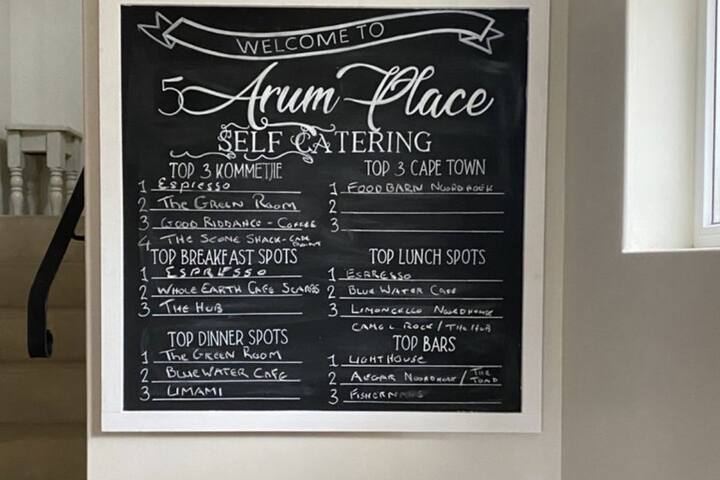 WELCOME TO
5 Arum Place
SELF CATERING
TOP 3 KOMMETJIE
1 ESPRESSO
2 THE GREEN ROOM
3 GOOD RIDDANCE - COFFEE
4 THE SCONE SHACK -
TOP 3 CAPE TOWN
1 FOODBARN NOORDHOEK
2
3
TOP BREAKFAST SPOTS
1 ESPRESSO
2 WHOLE EARTH CAFE
3 THE HUB
TOP LUNCH SPOTS
1 ESPRESSO
2 BLUE WATER CAFE
3 LIMONCELLO NOORDHOEK
CAMEL ROCK / THE HUB
TOP DINNER SPOTS
1 THE GREEN ROOM
2 BLUE WATER CAFE
3 LIMAMI
TOP BARS
1 LIGHTHOUSE
2 NOORDHOEK / THE TOAD
3